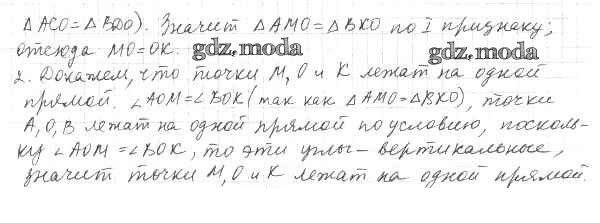 △ACO=△BDO). Значит △AMO=△BKO по I признаку;
отсюда MO=OK. gdz.moda gdz.moda
2. Докажем, что точки M, O и K лежат на одной
прямой. ∠AOM=∠BOK (так как △AMO=△BKO), точки
A, O, B лежат на одной прямой по условию, посколь-
ку ∠AOM =∠BOK, то эти углы - вертикальные,
значит точки M, O и K лежат на одной прямой.